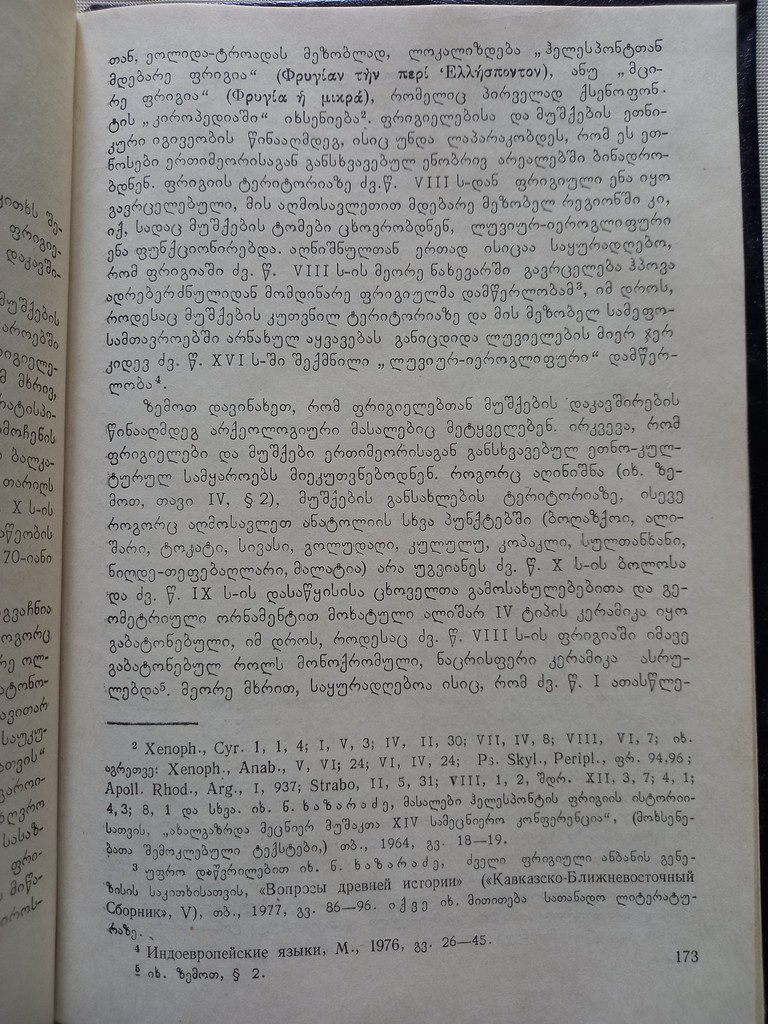 თან, ეოლიდა-ტროადას მეზობლად, ლოკალიზდება „ჰელესპონტთან
მდებარე ფრიგია“ (Φρυγίαν τὴν περί ‘Ελλήσποντον), ანუ „მცი-
რე ფრიგია“ (Φρυγία ἡ μικρά), რომელიც პირველად ქსენოფონ-
ტის „კიროპედიაში“ იხსენიება². ფრიგიელებისა და მუშქების ეთნი-
კური იგივეობის წინააღმდეგ, ისიც უნდა ლაპარაკობდეს, რომ ეს ეთ-
ნოსები ერთიმეორისაგან განსხვავებულ ენობრივ არეალებში ბინადრო-
ბდნენ. ფრიგიის ტერიტორიაზე ძვ.წ. VIII ს-დან ფრიგიული ენა იყო
გავრცელებული, მის აღმოსავლეთით მდებარე მეზობელ რეგიონში კი,
იქ, სადაც მუშქების ტომები ცხოვრობდნენ, ლუვიურ-იეროგლიფური
ენა ფუნქციონირებდა. აღნიშნულთან ერთად ისიცაა საყურადღებო,
რომ ფრიგიაში ძვ. წ. VIII ს-ის მეორე ნახევარში გავრცელება ჰპოვა
ადრებერძნულიდან მომდინარე ფრიგიულმა დამწერლობამ³, იმ დროს,
როდესაც მუშქების კუთვნილ ტერიტორიაზე და მის მეზობელ სამეფო-
სამთავროებში არნახულ აყვავებას განიცდიდა ლუვიელების მიერ ჯერ
კიდევ ძვ. წ. XVI ს-ში შექმნილი „ლუვიურ-იეროგლიფური“ დამწერ-
ლობა⁴.
ზემოთ დავინახეთ, რომ ფრიგიელებთან მუშქების დაკავშირების
წინააღმდეგ არქეოლოგიური მასალებიც მეტყველებენ. ირკვევა, რომ
ფრიგიელები და მუშქები ერთიმეორისაგან განსხვავებულ ეთნო-კულ-
ტურულ სამყაროებს მიეკუთვნებოდნენ. როგორც აღინიშნა (იხ. ზე-
მოთ, თავი IV, § 2), მუშქების განსახლების ტერიტორიაზე, ისევე
როგორც აღმოსავლეთ ანატოლიის სხვა პუნქტებში (ბოღაზქოი, ალი-
შარი, ტოკატი, სივასი, გოლუდაღი, კულულუ, კოპაკლი, სულთანხანი,
ნიღდე-თეფებაღლარი, მალატია) არა უგვიანეს ძვ. წ. X ს-ის ბოლოსა
და ძვ. წ. IX ს-ის დასაწყისისა ცხოველთა გამოსახულებებითა და გე-
ომეტრიული ორნამენტით მოხატული ალიშარ IV ტიპის კერამიკა იყო
გაბატონებული, იმ დროს, როდესაც ძვ. წ. VIII ს-ის ფრიგიაში იმავე
გაბატონებულ როლს მონოქრომული, ნაცრისფერი კერამიკა ასრუ-
ლებდა⁵. მეორე მხრით, საყურადღებოა ისიც, რომ ძვ. წ. I ათასწლე-
² Xenoph., Cyr. 1, 1, 4; I, V, 3; IV, II, 30; VII, IV, 8; VIII, VI, 7; იხ.
აგრეთვე: Xenoph., Anab., V, VI; 24; VI, IV, 24; Ps. Skyl., Peripl., ფრ. 94,96;
Apoll. Rhod., Arg., I, 937; Strabo, II, 5, 31; VIII, 1, 2, შდრ. XII, 3, 7; 4, 1;
4,3; 8, 1 და სხვა. იხ. ნ. ხაზარაძე, მასალები ჰელესპონტის ფრიგიის ისტორიი-
სათვის, „ახალგაზრდა მეცნიერ მუშაკთა XIV სამეცნიერო კონფერენცია“, (მოხსენე-
ბათა შემოკლებული ტექსტები,) თბ., 1964, გვ. 18—19.
³ უფრო დაწვრილებით იხ. ნ. ხაზარაძე, ძველი ფრიგიული ანბანის გენე-
ზისის საკითხისათვის, «Вопросы древней истории» («Кавказско-Ближневосточный
Сборник», V), თბ., 1977, გვ. 86—96. იქვე იხ. მითითება სათანადო ლიტერატუ-
რაზე.
⁴ Индоевропейские языки, М., 1976, გვ. 26—45.
⁵ იხ. ზემოთ, § 2.
173